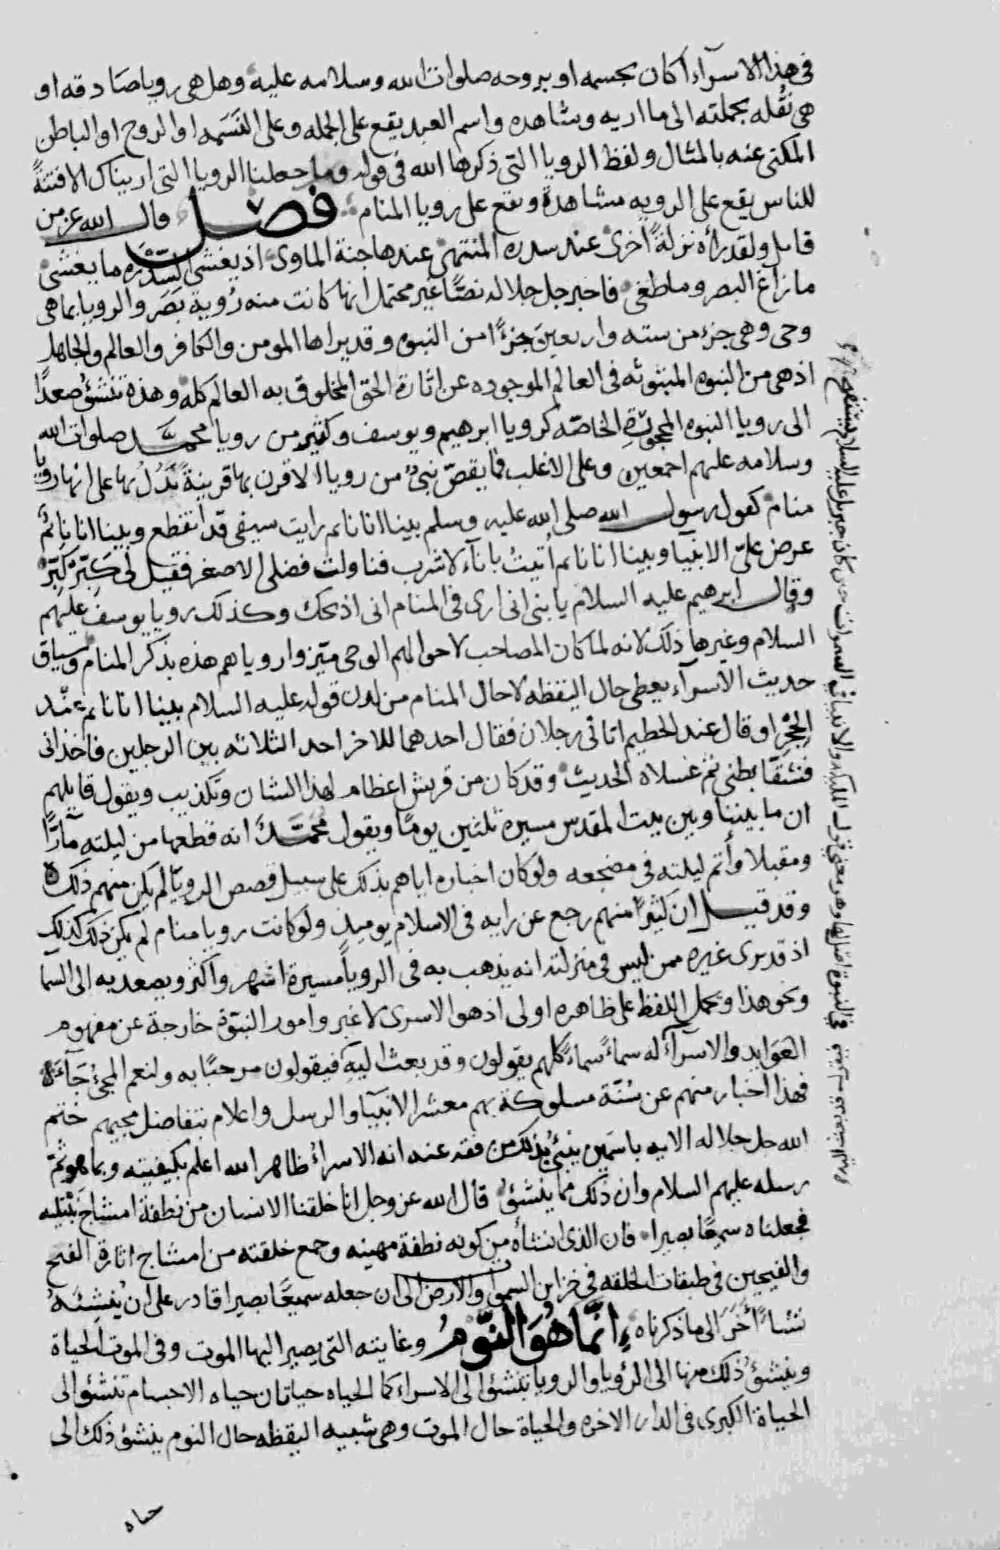 في هذا الاسرآء اكان بجسمه او بروحه صلوات الله وسلامه عليه وهل هي رويا صادقه او
هي نقله بجملته الى ما اريه وشاهده واسم العبد يقع على الجمله وعلى النسمه او الروح او الباطن
المكنى عنه بالمثال ولفظ الرويا التي ذكرها الله في قوله وما جعلنا الرويا التي اريناك الا فتنةً
للناس يقع على الرويه مشاهدة ويقع على رويا المنام فصل قال الله عز من
قايل ولقد رأه نزلةً اخرى عند سدره المنتهى عندها جنة الماوى اذ يغشى السدره ما يغشى
ما زاغ البصر وما طغى فاخبر جل جلاله نصًّا غير محتمل انها كانت منه رؤية بصر والرويا بما هي
وحي وهي جزء من سته واربعين جزءًا من النبوه وقد يراها المومن والكافر والعالم والجاهل
اذ هي من النبوه المبثوثه في العالم الموجوده عن اثارة الحق المخلوق به العالم كله وهذه تنشؤ صعدًا
الى رويا النبوه الخاصه كرويا ابرهيم ويوسف وكثير من رويا محمد صلوات الله
وسلامه عليهم اجمعين وعلى الاغلب فما يقص نبي من رويا الا قرن بها قرينةً تدل بها على انها رويا
منام كقول رسول الله صلى الله عليه وسلم بينا انا نايم رايت سيفي قد انقطع وبينا انا نايم
عرض علي الانبيا وبينا انا نايم أتيت باناء لاشرب فناولت فضلي الاصغر فقيل لي كبر كبر
وقال ابرهيم عليه السلام يا بني اني ارى في المنام اني اذبحك وكذلك رويا يوسف عليهم
السلام وغيرها ذلك لانه لما كان المصاحب لاحوالهم الوحي ميزوا روياهم هذه بذكر المنام وسياق
حديث الاسرآء يعطي حال اليقظه لا حال المنام من لدن قوله عليه السلام بينا انا نايم عند
الحجر او قال عند الحطيم اتاني رجلان فقال احدهما للاخر احد الثلاثه بين الرجلين فاخذاني
فشقا بطني ثم غسلاه الحديث وقد كان من قريش اعظام لهذا الشان وتكذيب ويقول قايلهم
ان ما بيننا وبين بيت المقدس مسيرة ثلثين يومًا ويقول محمد انه قطعها من ليلته مارًّا
ومقبلا وأتم ليلته في مضجعه ولو كان اخباره اياهم بذلك على سبيل قصص الرويا لم يكن منهم ذلك
وقد قيل ان كثيرًا منهم رجع عن رايه في الاسلام يوميذ ولو كانت رويا منام لم يكن ذلك كذلك
اذ قد يرى غيره ممن ليس في منزلته انه يذهب به في الرويا مسيرة اشهر واكثر ويصعد به الى السما
ونحو هذا وتحمل اللفظ على ظاهره اولى اذ هو الاسرى لا غير وامور النبوة خارجة عن مفهوم
العوايد والاسرآء له سماءً سماءً كلهم يقولون وقد بعث اليه فيقولون مرحبًا به ولنعم المجئ جآء
فهذا اخبار منهم عن سُنّة مسلوكة بهم معشر الانبيا والرسل واعلام بتفاضل مجيهم ختم
الله جل جلاله الايه باسمين ينبئ بذلك من فقه عنه انه الاسراء ظاهر الله اعلم بكيفيته وبما هو
رسله عليهم السلام وان ذلك مما ينشؤ قال الله عز وجل انا خلقنا الانسان من نطفة امشاج نبتليه
فجعلناه سميعًا بصيرا فان الذي انشأه من كونه نطفة مهينه وجمع خلقته من امشاج اثارة الفتح
والفيحين في طبقات الخلقه في خزاين السموات والارض الى ان جعله سميعًا بصيرا قادر على ان ينشئه
نشأً أخر الى ما ذكرناه انما هو النوم وغايته التي يصير اليها الموت وفي الموت الحياة
وينشؤ ذلك منها الى الرؤيا والرويا تنشؤ الى الاسراء كما الحياه حياتان حياه الاجسام تنشؤ الى
الحياة الكبرى في الدار الاخره والحياة حال الموت وهي شبيه اليقظه حال النوم ينشؤ ذلك الى
حياه